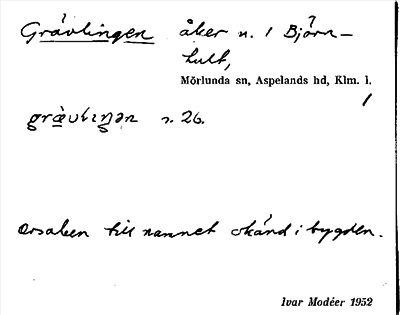 Grävlingen åker n. 1 Björn-
hult,
Mörlunda sn, Aspelands hd, Klm. l.
1
grävlıŋən n. 26.
Orsaken till namnet okänd i bygden.
Ivar Modéer 1952